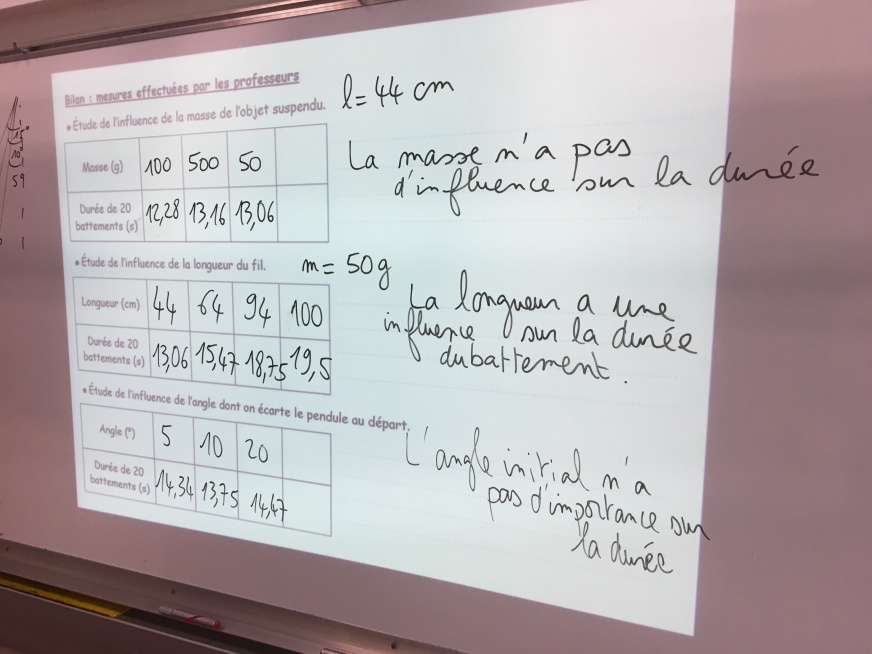 Bilan : mesures effectuées par les professeurs
l = 44 cm
• Étude de l'influence de la masse de l'objet suspendu.
Masse (g) 100 500 50
Durée de 20 battements (s) 12,28 13,16 13,06
La masse n'a pas
d'influence sur la durée
• Étude de l'influence de la longueur du fil.
m = 50g
Longueur (cm) 44 64 94 100
Durée de 20 battements (s) 13,06 15,47 18,75 19,5
La longueur a une
influence sur la durée
du battement.
• Étude de l'influence de l'angle dont on écarte le pendule au départ.
Angle (°) 5 10 20
Durée de 20 battements (s) 14,34 13,75 14,47
L'angle initial n'a
pas d'importance sur
la durée
59
1
1